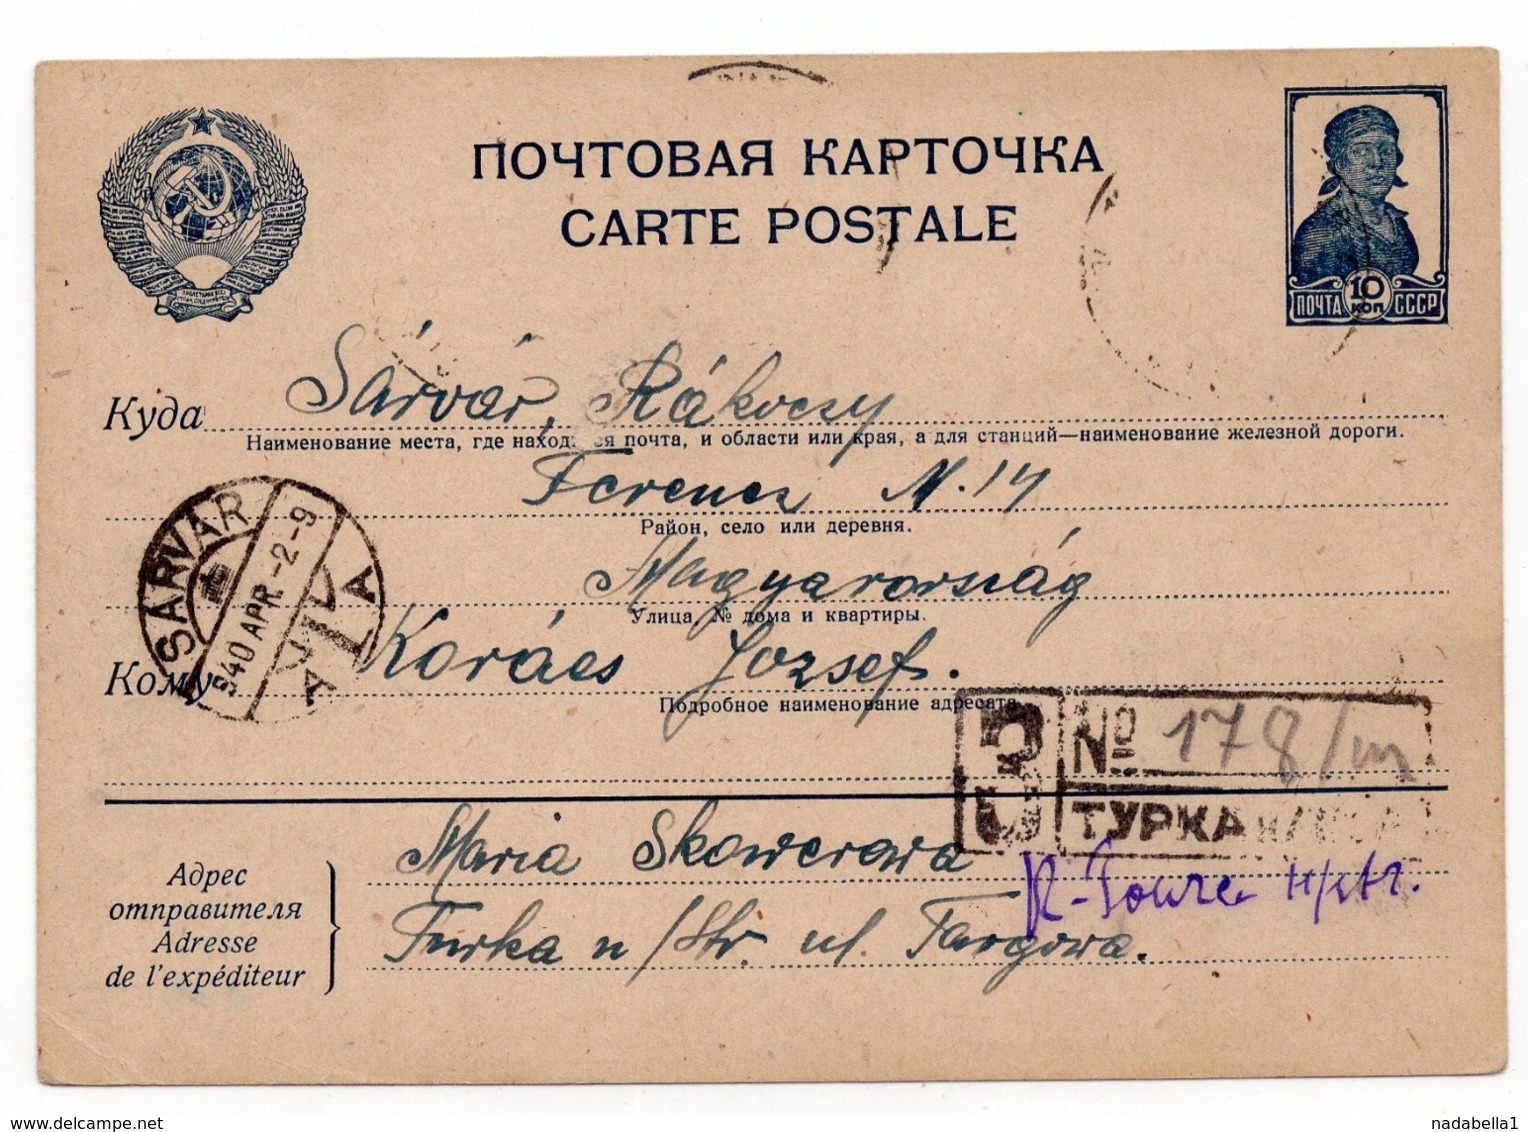 ПОЧТОВАЯ КАРТОЧКА
CARTE POSTALE
ПОЧТА 10 КОП СССР
Куда Sárvár, Rákoczy
Наименование места, где находится почта, и области или края, а для станций—наименование железной дороги.
Ferencz N. 14
Район, село или деревня.
Magyarország
Улица, № дома и квартиры.
SÁRVÁR
940 APR. -2-9
Кому Kovács Jozsef.
Подробное наименование адресата
№ 178/m
ТУРКА
Адрес отправителя
Adresse de l'expéditeur
Maria Skowerowa
Turka n/Str. ul. Targowa.
delcampe.net
nadabella1